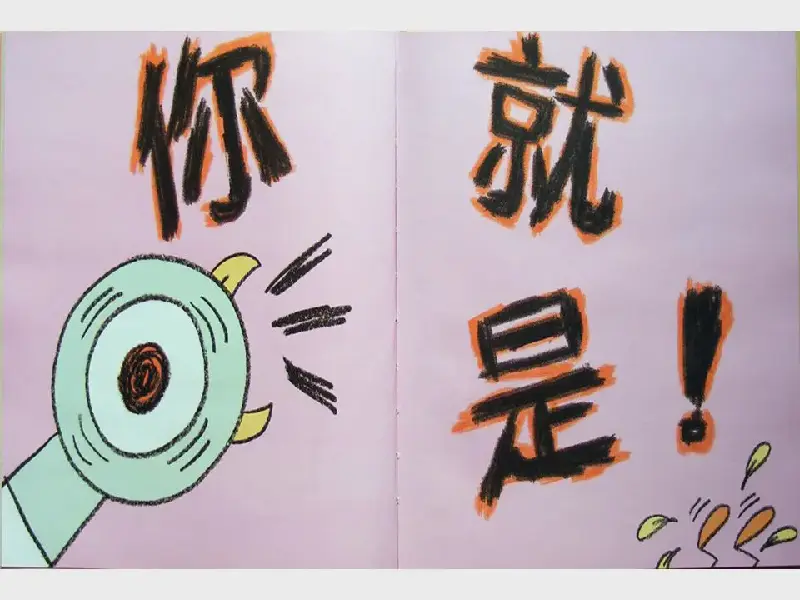 你就
是！